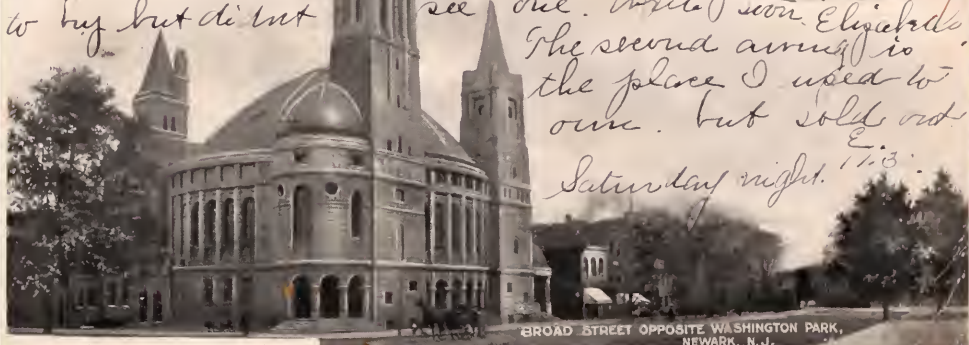 to buy but did not see one. Write soon. Elizabeth.
The second awning is
the place I used to
own. but sold out
E.
Saturday night. 11.3.
BROAD STREET OPPOSITE WASHINGTON PARK,
NEWARK, N.J.